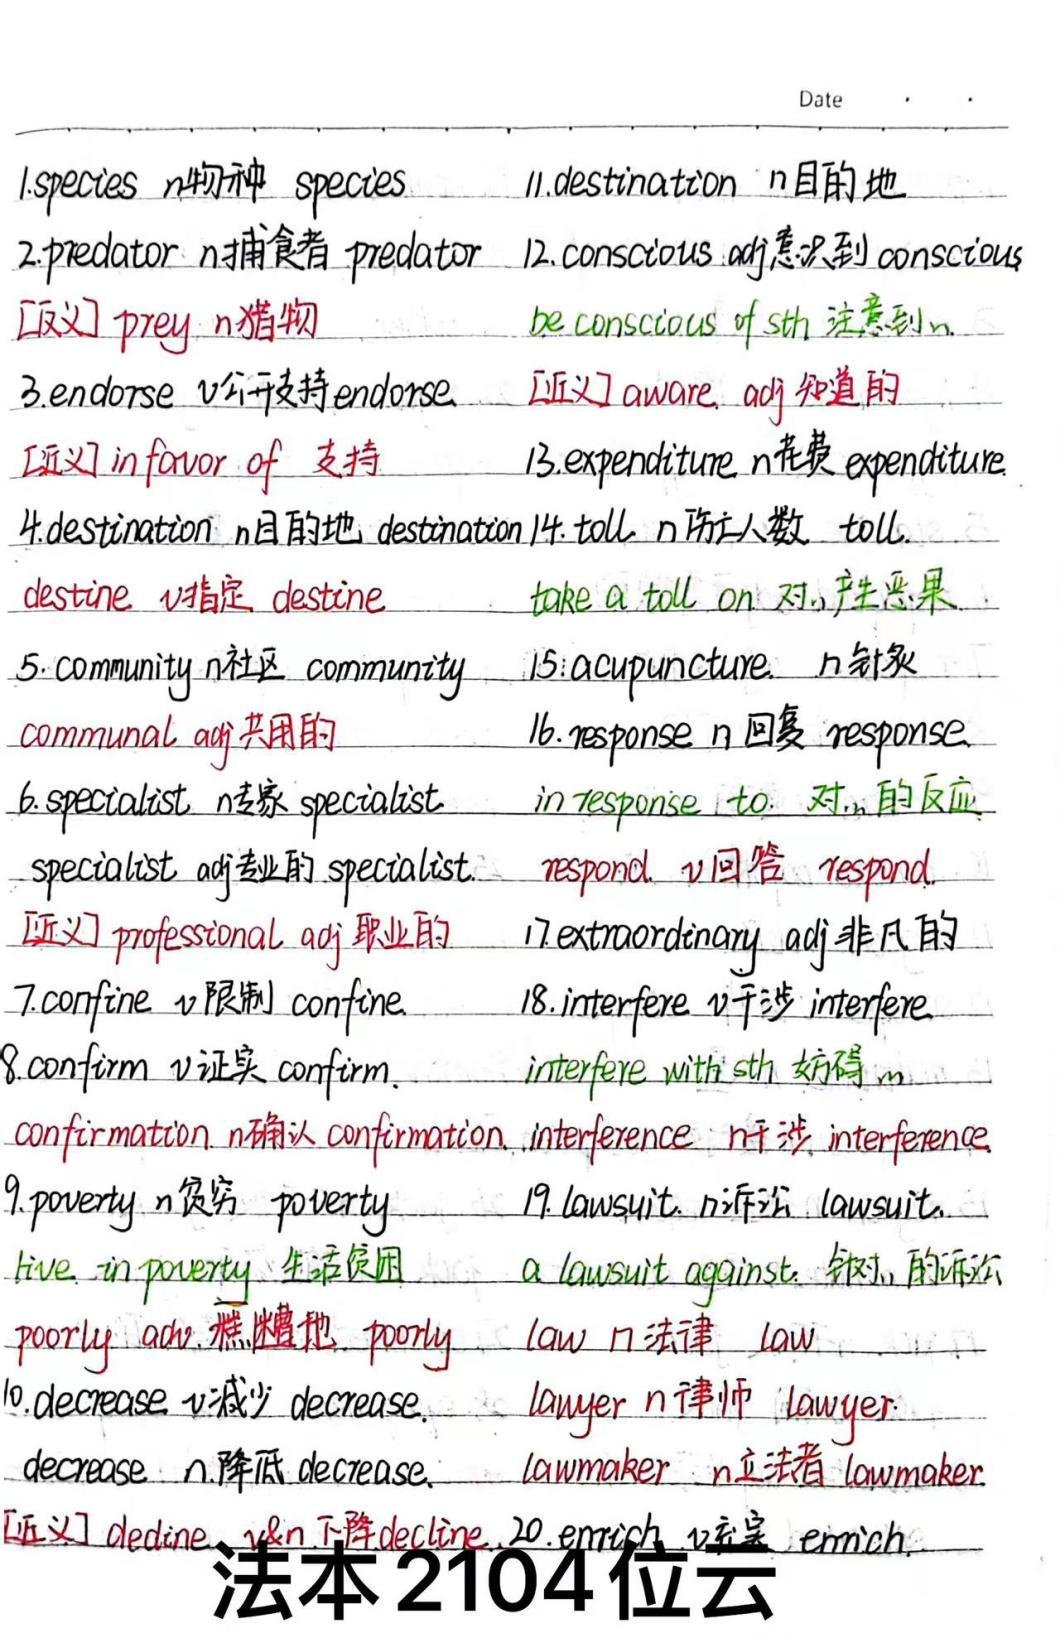 Date
1.species n物种 species
2.predator n捕食者 predator
[反义] prey n猎物
3.endorse v公开支持 endorse
[近义] in favor of 支持
4.destination n目的地 destination
destine v指定 destine
5.community n社区 community
communal adj共用的
6.specialist n专家 specialist
specialist adj专业的 specialist.
[近义] professional adj 职业的
7.confine v限制 confine.
8.confirm v证实 confirm.
confirmation n确认 confirmation.
9.poverty n贫穷 poverty
live in poverty 生活贫困
poorly adv.糕糟地 poorly
10.decrease v减少 decrease.
decrease n.降低 decrease.
[近义] decline v&n下降 decline.
11.destination n目的地
12.conscious adj意识到 conscious
be conscious of sth 注意到...
[近义] aware. adj 知道的
13.expenditure n花费 expenditure.
14.toll n伤亡人数 toll.
take a toll on 对...产生恶果
15.acupuncture. n针灸
16.response n回复 response.
in response to. 对...的反应
respond. v回答 respond.
17.extraordinary adj非凡的
18.interfere v干涉 interfere
interfere with sth 妨碍...
interference n干涉 interference.
19.lawsuit. n诉讼 lawsuit.
a lawsuit against. 针对...的诉讼
law n法律 law
lawyer n律师 lawyer.
lawmaker n立法者 lawmaker.
20.enrich v充实 enrich.
法本2104位云